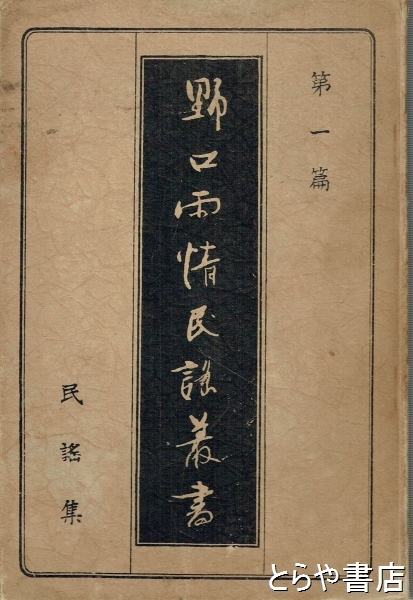 第一篇
野口雨情民謡叢書
民謠集
とらや書店